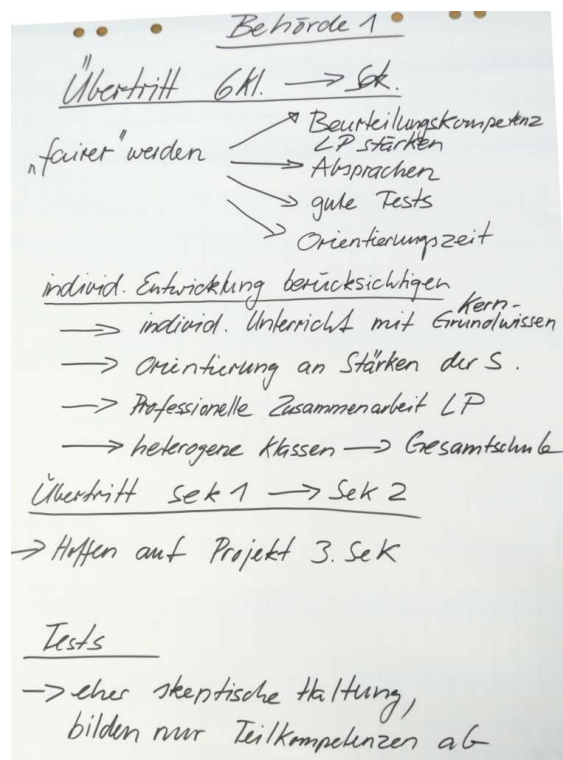 Behörde 1
Übertritt 6Kl. → Sek.
„fairer" werden
→ Beurteilungskompetenz
LP stärken
→ Absprachen
→ gute Tests
→ Orientierungszeit
individ. Entwicklung berücksichtigen
Kern-
→ individ. Unterricht mit Grundwissen
→ Orientierung an Stärken der S.
→ Professionelle Zusammenarbeit LP
→ heterogene Klassen → Gesamtschule
Übertritt Sek 1 → Sek 2
→ Hoffen auf Projekt 3. Sek
Tests
→ eher skeptische Haltung,
bilden nur Teilkompetenzen ab